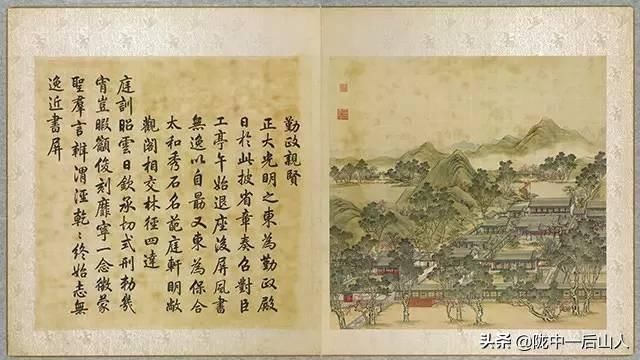 勤政親賢
正大光明之東為勤政殿
日於此披省章奏召對臣
工亭午始退座後屏風書
無逸以自勗又東為保合
太和秀石名葩庭軒明敞
觀閣相交林徑四達
庭訓昭雲日欽承切式刑勑幾
宵豈暇籲俊刻靡寧一念微蒙
聖羣言辨渭涇乾〻終始志無
逸近書屏
头条 @陇中一后山人